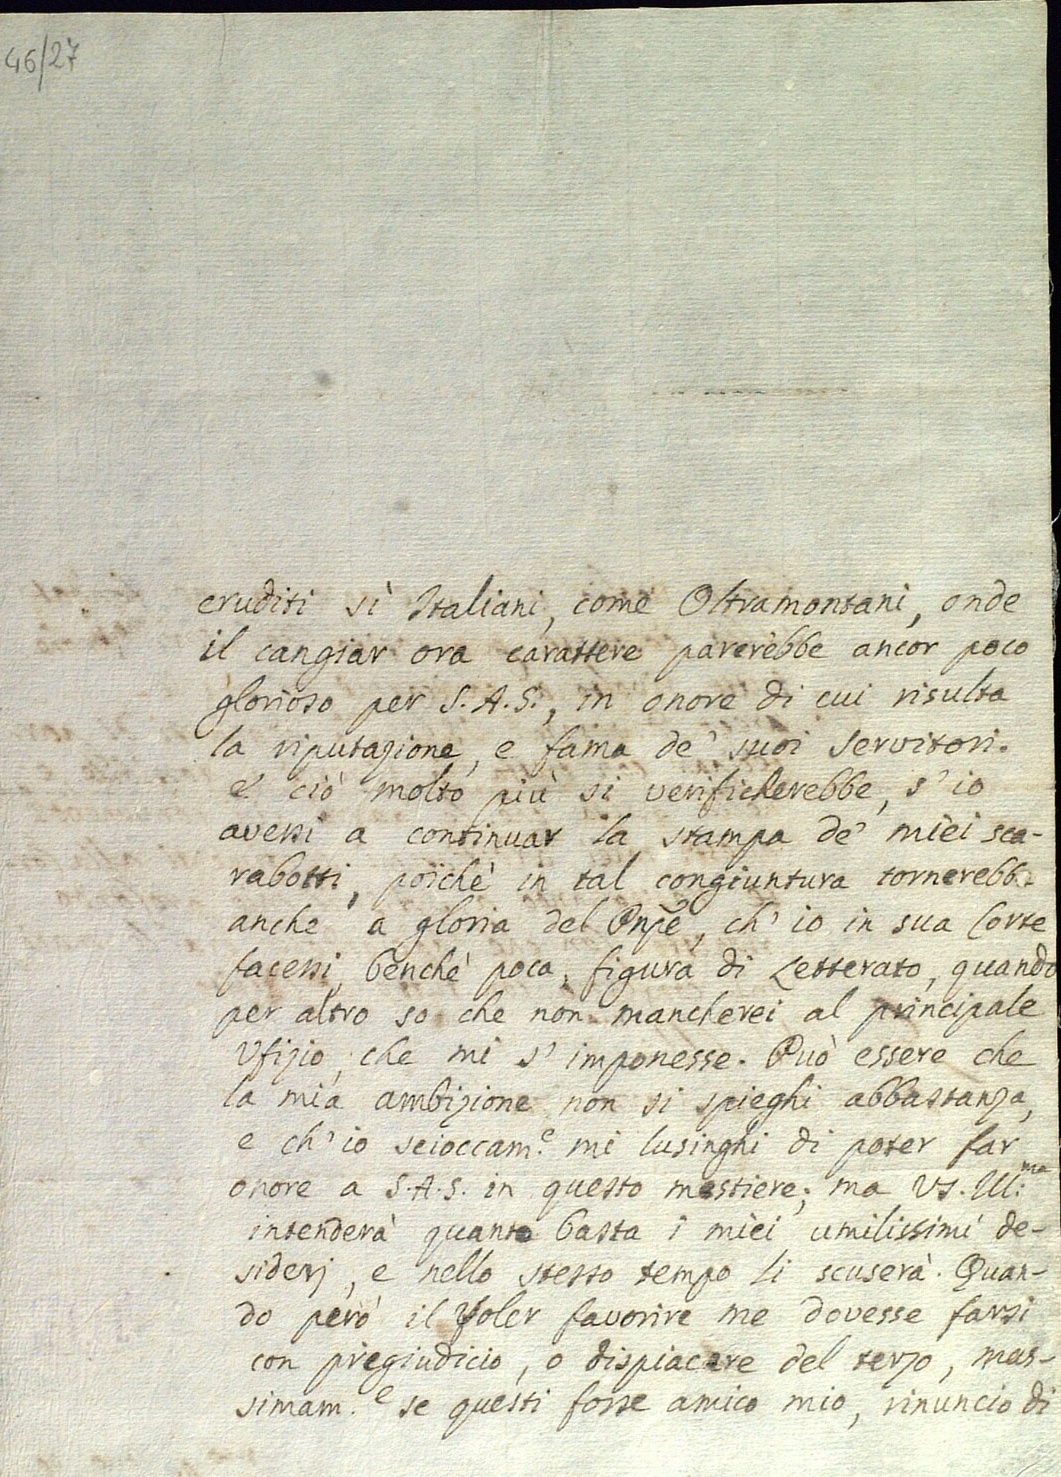 46/27
eruditi sì Italiani, come Oltramontani, onde
il cangiar ora carattere parerebbe ancor poco
glorioso per S.A.S., in onore di cui risulta
la riputazione, e fama de' suoi servitori.
E ciò molto più si verificherebbe, s' io
avessi a continuar la stampa de' miei sca-
rabotti, poichè in tal congiuntura tornerebbe
anche a gloria del Pnpe, ch' io in sua Corte
facessi, benchè poca, figura di Letterato, quando
per altro so che non mancherei al principale
Ufizio, che mi s' imponesse. Può essere che
la mia ambizione non si spieghi abbastanza,
e ch' io scioccam.e mi lusinghi di poter far
onore a S.A.S. in questo mestiere; ma VS. Ill:ma
intenderà quanto basta i miei umilissimi de-
siderj, e nello stesso tempo li scuserà. Quan-
do però il voler favorire me dovesse farsi
con pregiudicio, o dispiacere del terzo, mas-
simam.e se questi fosse amico mio, rinuncio di